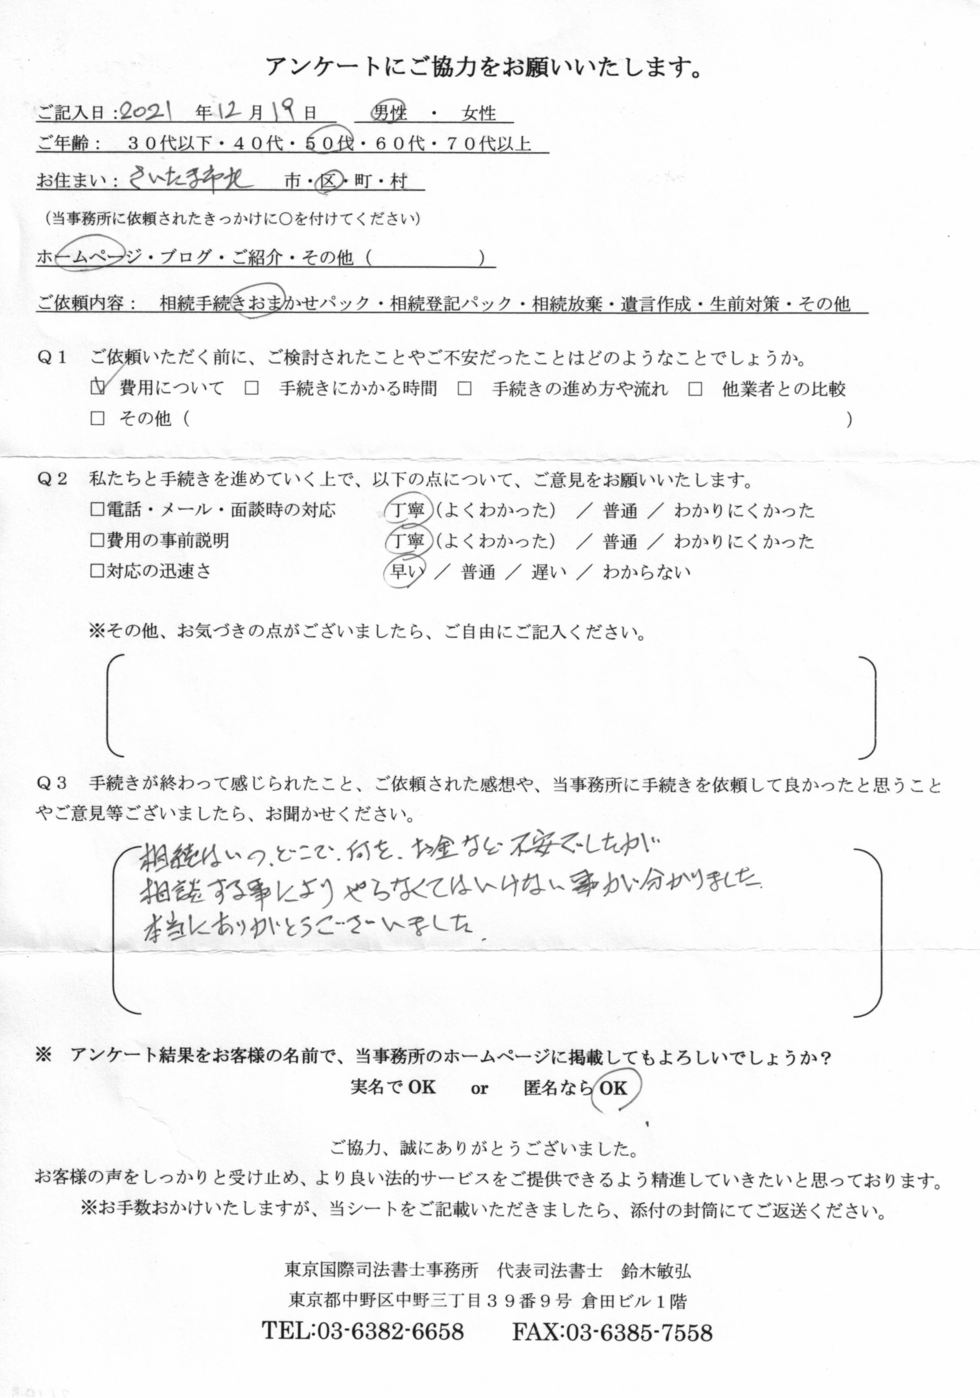 アンケートにご協力をお願いいたします。
ご記入日：2021 年12月19日 男性 ・ 女性
ご年齢： ３０代以下・４０代・５０代・６０代・７０代以上
お住まい：さいたま市北 市・区・町・村
（当事務所に依頼されたきっかけに○を付けてください）
ホームページ・ブログ・ご紹介・その他（ ）
ご依頼内容： 相続手続きおまかせパック・相続登記パック・相続放棄・遺言作成・生前対策・その他
Ｑ１ ご依頼いただく前に、ご検討されたことやご不安だったことはどのようなことでしょうか。
☑ 費用について □ 手続きにかかる時間 □ 手続きの進め方や流れ □ 他業者との比較
□ その他（ ）
Ｑ２ 私たちと手続きを進めていく上で、以下の点について、ご意見をお願いいたします。
□電話・メール・面談時の対応 丁寧（よくわかった） ／ 普通 ／ わかりにくかった
□費用の事前説明 丁寧（よくわかった） ／ 普通 ／ わかりにくかった
□対応の迅速さ 早い ／ 普通 ／ 遅い ／ わからない
※その他、お気づきの点がございましたら、ご自由にご記入ください。
Ｑ３ 手続きが終わって感じられたこと、ご依頼された感想や、当事務所に手続きを依頼して良かったと思うこと
やご意見等ございましたら、お聞かせください。
相続はいつ、どこで、何を、お金など不安でしたが
相談する事によりやらなくてはいけない事がい分かりました.
本当にありがとうございました.
※ アンケート結果をお客様の名前で、当事務所のホームページに掲載してもよろしいでしょうか？
実名でOK or 匿名ならOK
ご協力、誠にありがとうございました。
お客様の声をしっかりと受け止め、より良い法的サービスをご提供できるよう精進していきたいと思っております。
※お手数おかけいたしますが、当シートをご記載いただきましたら、添付の封筒にてご返送ください。
東京国際司法書士事務所 代表司法書士 鈴木敏弘
東京都中野区中野三丁目３９番９号 倉田ビル１階
TEL:03-6382-6658 FAX:03-6385-7558